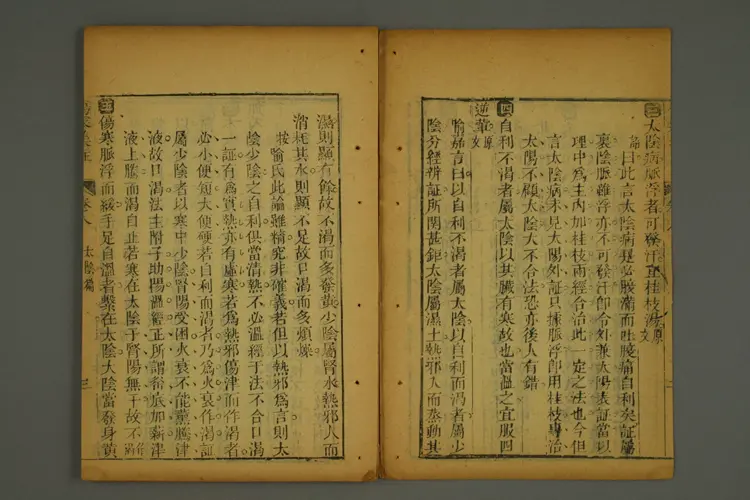 三 太陰病脈浮者可發汗宜桂枝湯 原文
論曰此言太陰病是必腹滿而吐腹痛自利矣証屬
裏陰脈雖浮亦不可發汗即令外兼太陽表証當以
理中為主內加桂枝兩經合治此一定之法也今但
言太陰病未見太陽外証只據脈浮即用桂枝專治
太陽不顧太陰大不合法恐亦後人有錯
四 自利不渴者屬太陰以其臟有寒故也當溫之宜服四
逆輩 原文
喻嘉言曰以自利不渴者屬太陰以自利而渴者屬少
陰分經辨証所關甚鉅太陰屬濕土熱邪入而蒸動其
濕則顯有餘故不渴而多發黃少陰屬腎水熱邪入而
消耗其水則顯不足故口渴而多煩燥
按喻氏此論雖精究非確義若但以熱邪為言則太
陰少陰之自利俱當清熱不必溫經于法不合口渴
一証有為實熱亦有虛寒若為熱邪傷津而作渴者
必小便短大便硬若自利而渴者乃為火衰作渴証
屬少陰者以寒中少陰腎陽受困火衰不能薰騰津
液故口渴法主附子助陽溫經正所謂釜底加薪津
液上騰而渴自止若寒在太陰于腎陽無干故不渴
五 傷寒脈浮而緩手足自溫者繫在太陰太陰當發身黃
太陰篇
三